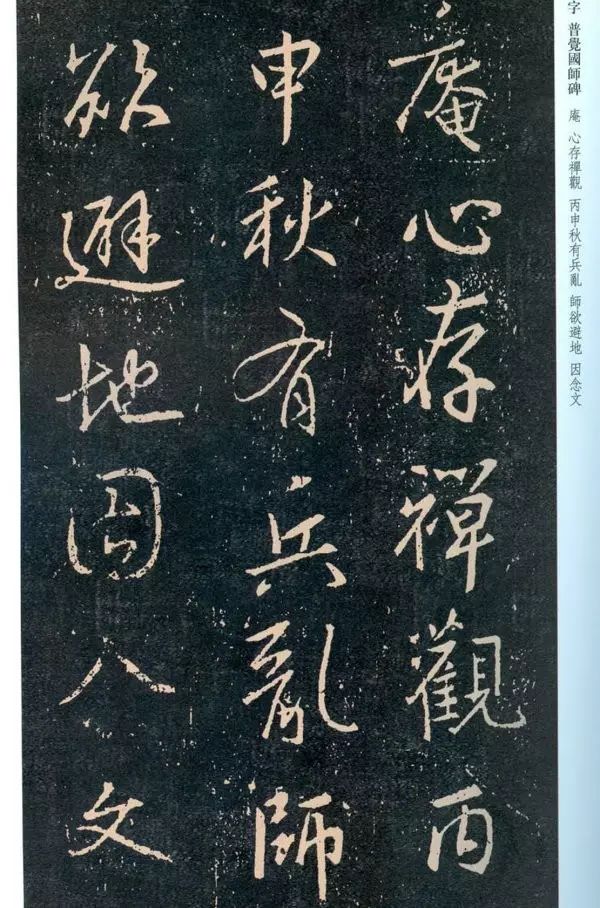 字 普覺國師碑 庵 心存禪觀 丙申秋有兵亂 師欲避地 因念文
庵心存禪觀丙
申秋有兵亂師
欲避地因念文